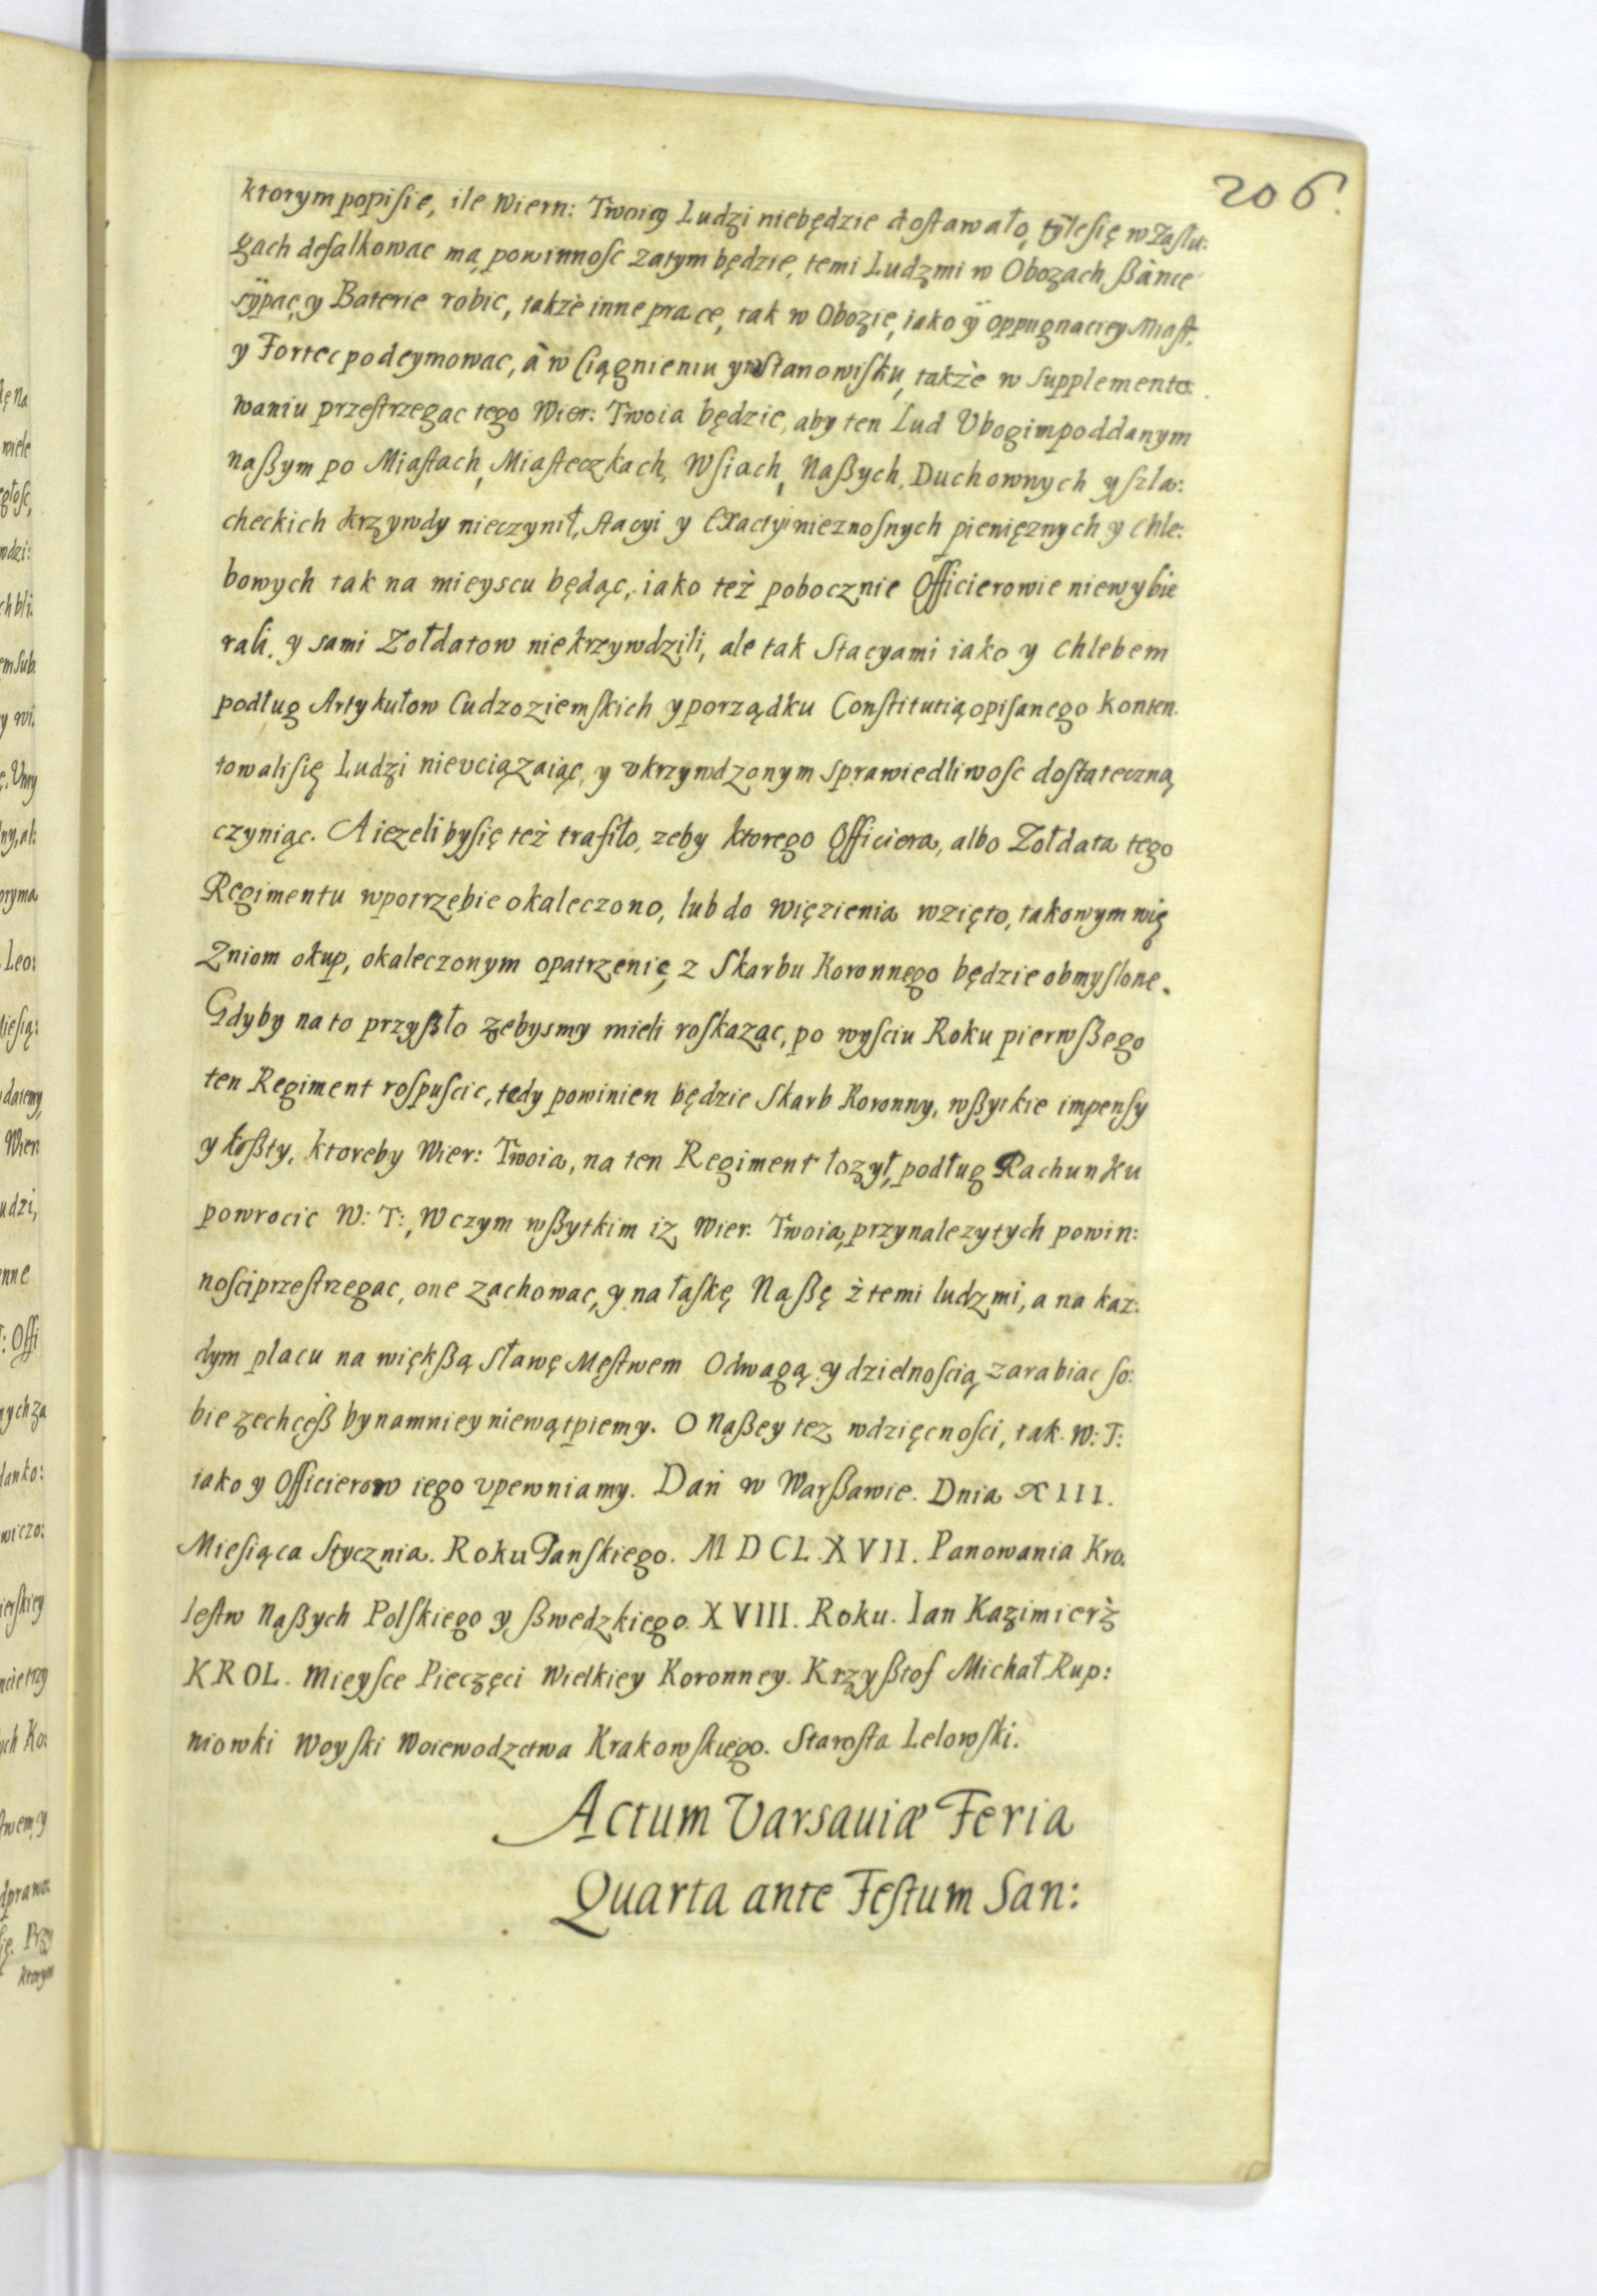 206.
ktorym popisie, ile Wiern: Twoiey Ludzi niebędzie dostawało, tÿlesię w Zasłu:
gach defalkowac ma, powinnosc zatym będzie, temi Ludzmi w Obozach, ßànce
sÿpac, y Baterie robic, takżè inne prace, tak w Obozie, iako ÿ oppugnaciey Miast.
y Fortec podeymowac, à w Ciągnieniu y w stanowisku, takżè w supplemento.
waniu przestrzegac tego Wier: Twoia będzie, aby ten Lud Vbogim poddanym
naßym po Miastach, Miasteczkach, Wsiach, Naßych, Duchownych y szla:
checkich krzywdy nieczynił, stacyi y Exactyi nieznosnych pienięznych y chle:
bowych tak na mieyscu będąc, iako też pobocznie Officierowie niewybie
rali. y sami Zołdatow niekrzywdzili, ale tak Stacyami iako y Chlebem
podług Artykułow Cudzoziemskich y porządku Constitutią opisanego konten.
towali się Ludzi nievciązaiąc, y vkrzywdzonym sprawiedliwosc dostateczną
czyniąc. A iezeliby się też trafiło, zeby ktorego Officiera, albo Zołdata tego
Regimentu w potrzebie okaleczono, lub do więzienia wzięto, takowym wię
Zniom okup, okaleczonym opatrzenie, z Skarbu Koronnego będzie obmyslone.
Gdyby na to przyßło zebysmy mieli roskazac, po wysciu Roku pierwßego
ten Regiment rospuscic, tedy powinien będzie Skarb Koronny, wßytkie impensy
y koßty, ktoreby Wier: Twoia, na ten Regiment łozył, podług Rachunku
powrocic W: T:, W czym wßytkim iz Wier. Twoia, przynalezytych powin:
nosci przestrzegac, one zachowac, y na łaskę Naßę ż temi ludzmi, a na kaz:
dym placu na więkßą Sławę Męstwem Odwagą y dzielnoscią zarabiac so:
bie zechceß bynamniey niewątpiemy. O Naßey tez wdzięcnosci, tak W: T:
iako y Officierow iego vpewniamy. Dań w Warßawie. Dnia XIII.
Miesiąca Stycznia. Roku Panskiego. M D C L X V I I. Panowania Kro.
lestw Naßych Polskiego y ßwedzkiego. XVIII. Roku. Ian Kazimierż
KROL. Mieysce Pieczęci Wielkiey Koronney. Krzyßtof Michał Rup:
niowki Woyski Woiewodzctwa Krakowskiego. Starosta Lelowski.
Actum Varsaviæ Feria
Quarta ante Festum San: